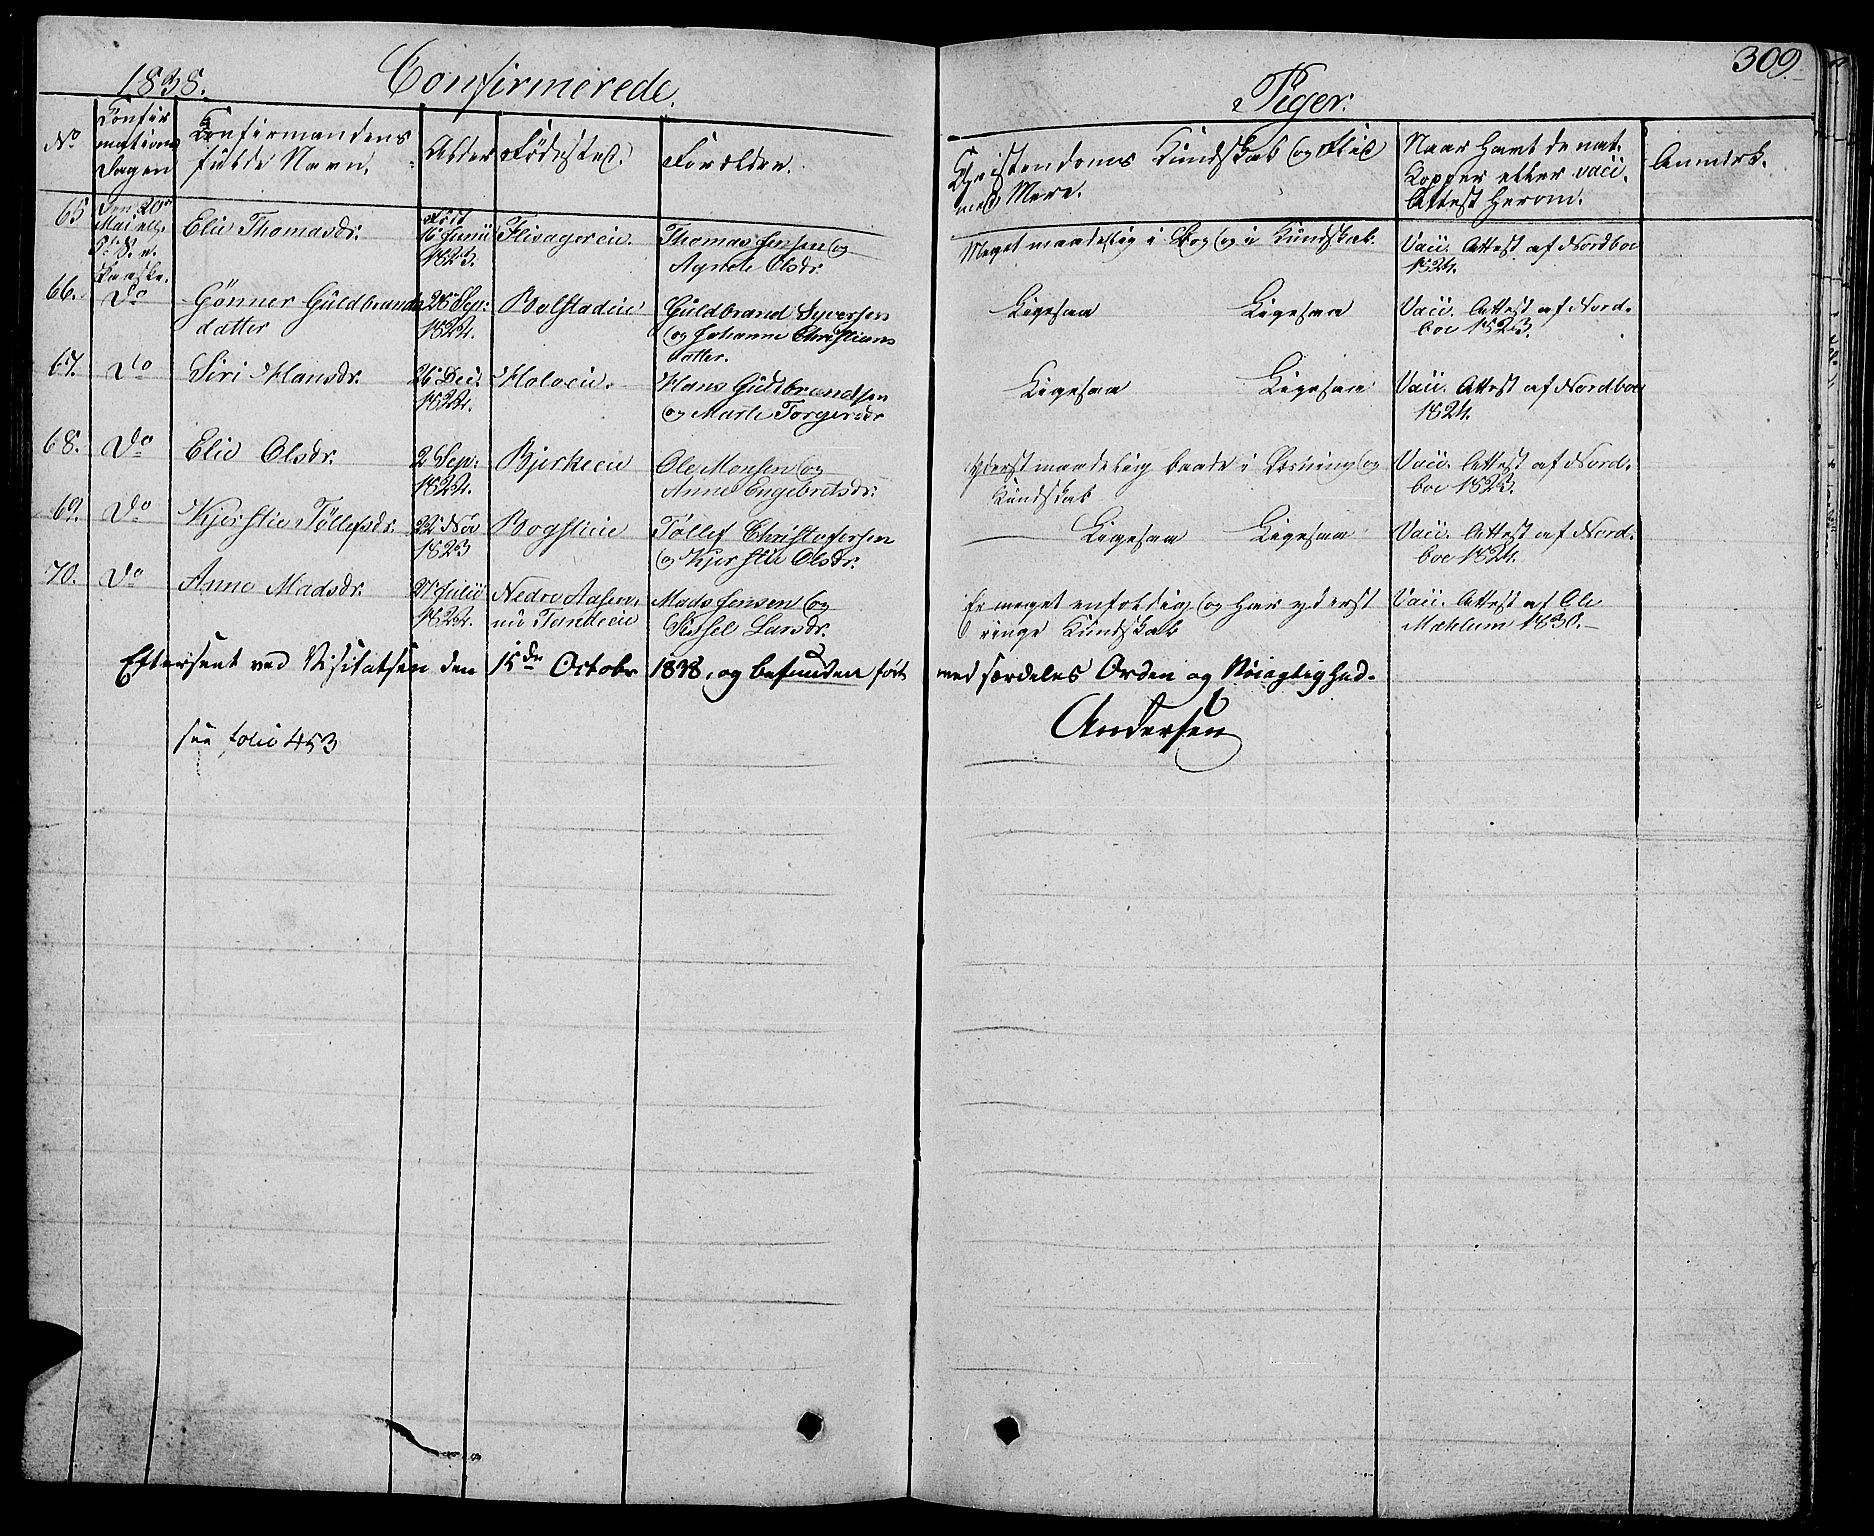 1838. Confirmerede Piger. 309
No
Confir
mations
Dagen
Confirmandens
fulde Navn.
Alder
Fødested.
Forældre.
Christendoms Kundskab og Flid
med Mere.
Naar havt de nat.
Kopper eller vacc.
Attest herom.
Anmærk.
65
den 20de
Mai
Paaske.
Elie Thomasdr.
Født
16 Junii
1823.
Flisagereie.
Thomas Jensen og
Agnete Olsdr.
Meget maadelig i Bog og i Kundskab.
Vacc. Attest af Nordboe
1824.
66.
Do
Gönner Guldbrands
datter
26 Sep:
1822.
Bolstadeie
Guldbrand Syversen
og Johanne Christians
datter.
Ligesaa Ligesaa
Vacc. Attest af Nord-
boe 1823.
67.
Do
Siri Hansdr.
26 Dec.
1822.
Holoeie.
Hans Guldbrandsen
og Marte Torgersdr
Ligesaa Ligesaa
Vacc. Attest af Nordboe
1824.
68.
Do
Elie Olsdr.
2 Sep:
1822.
Bjerkeeie
Ole Monsen og
Anne Engebretsdr.
Yderst maadelig baade i Læsning og
Kundskab
Vacc. Attest af Nord-
boe 1823.
69.
Do
Kjerstie Töllefsdr.
22 Nov
1823
Bogstieie
Töllef Christofersen
og Kjerstie Olsdr.
Ligesaa Ligesaa
Vacc. Attest af Nord-
boe 1824.
70.
Do
Anne Madsdr.
27 Julii
1822.
Nedre Aasen,
Tandeeie
Mads Jensen og
Sissel Larsdr.
Er meget enfoldig og har yderst
ringe Kundskab
Vacc. Attest af Ole
Mæhlum 1830.
Eftersent ved Visitatsen den 15de Octobr 1838, og befunden ført med særdeles Orden og Nøiagtighed.
Andersen
see folio 453